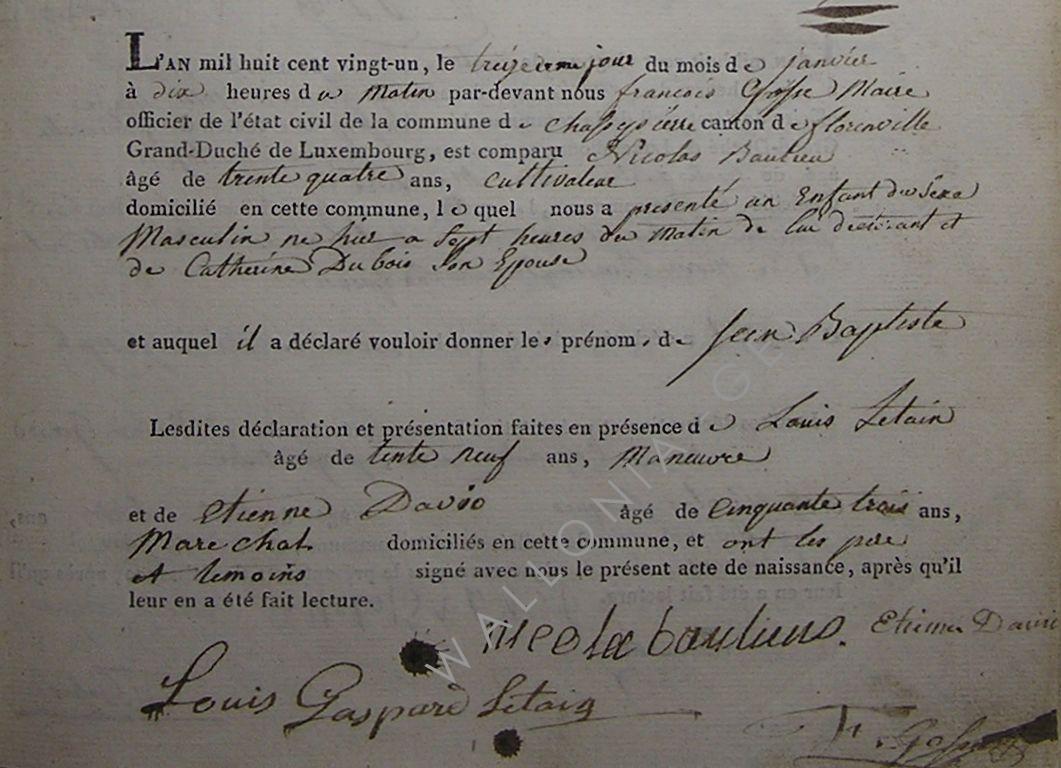 L'AN mil huit cent vingt-un, le treizieme jour du mois de janvier
à dix heures du Matin par-devant nous francois Gosse Maire
officier de l'état civil de la commune de chassepierre canton de florenville
Grand-Duché de Luxembourg, est comparu Nicolas Baulieu
âgé de trente quatre ans, cultivateur
domicilié en cette commune, le quel nous a presenté un Enfant du Sexe
Masculin ne hier a Sept heures du Matin de lui déclarant et
de Catherine Dubois Son Epouse
et auquel il a déclaré vouloir donner les prénoms de Jean Baptiste
Lesdites déclaration et présentation faites en présence de Louis Letain
âgé de tente neuf ans, Maneuvre
et de etienne David âgé de Cinquante trois ans,
Marechal domiciliés en cette commune, et ont les pere
et temoins signé avec nous le présent acte de naissance, après qu'il
leur en a été fait lecture.
nicolas baulieus. Etienne David
Louis Gaspard Letain
F. Gosse
WALLONIA GE